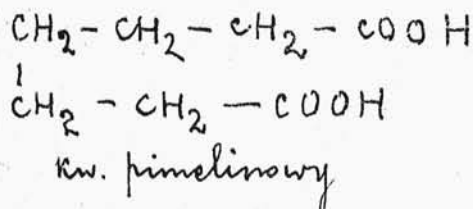 CH₂ – CH₂ – CH₂ – COOH
CH₂ – CH₂ – COOH
kw. pimelinowy